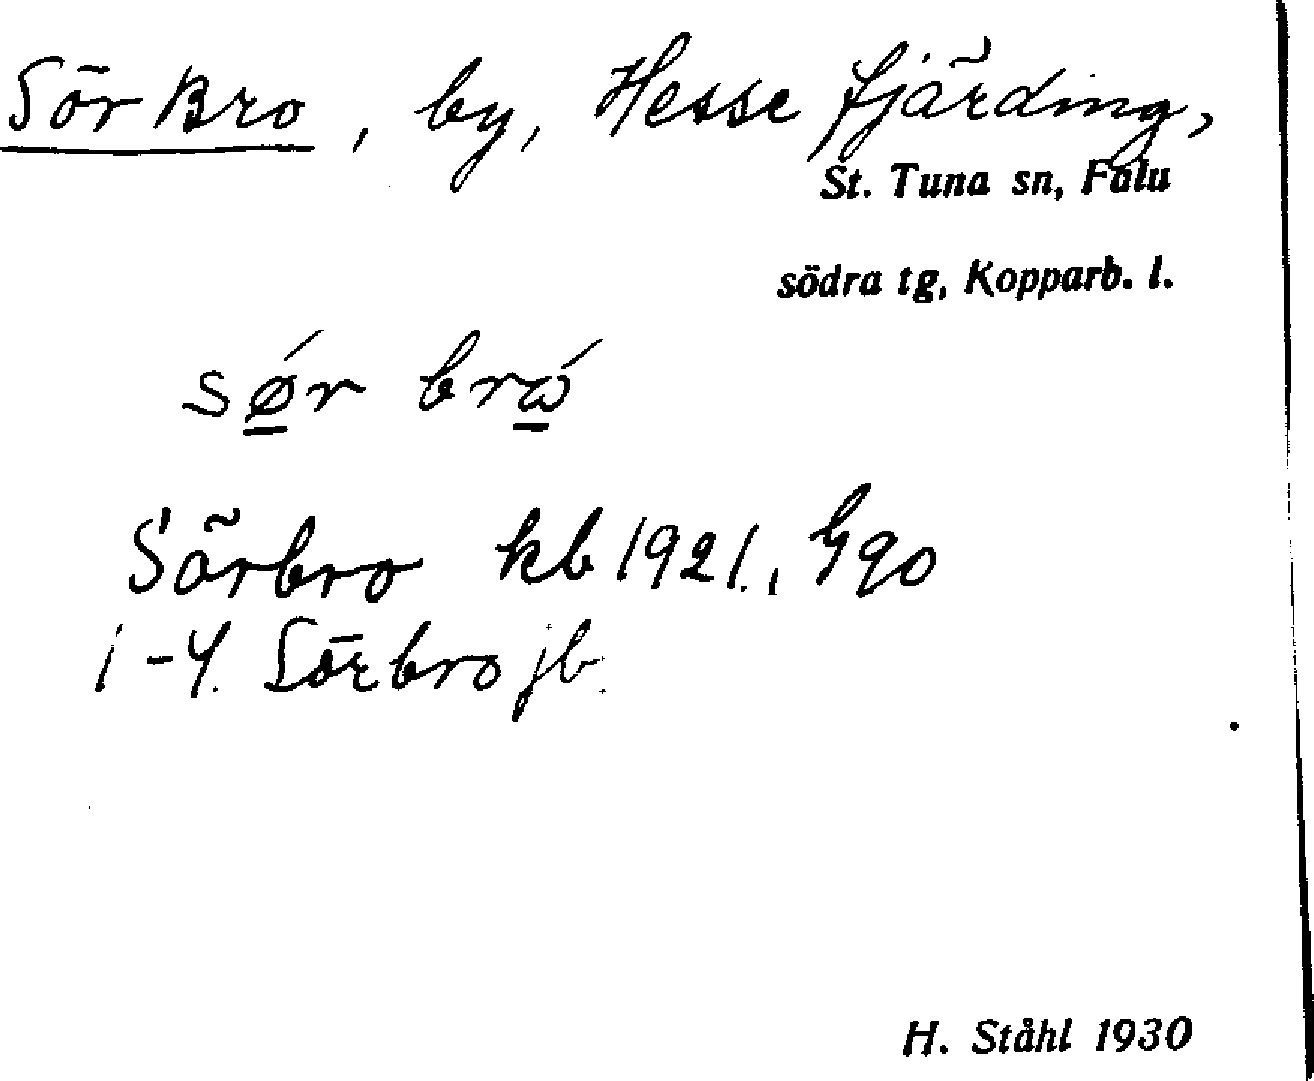 Sör Bro, by, Hesse fjärding,
St. Tuna sn, Falu
södra tg, Kopparb. l.
sǿ̲r brώ̲
Sörbro kb 1921., Ggo
1-4. Sörbro jb.
H. Ståhl 1930